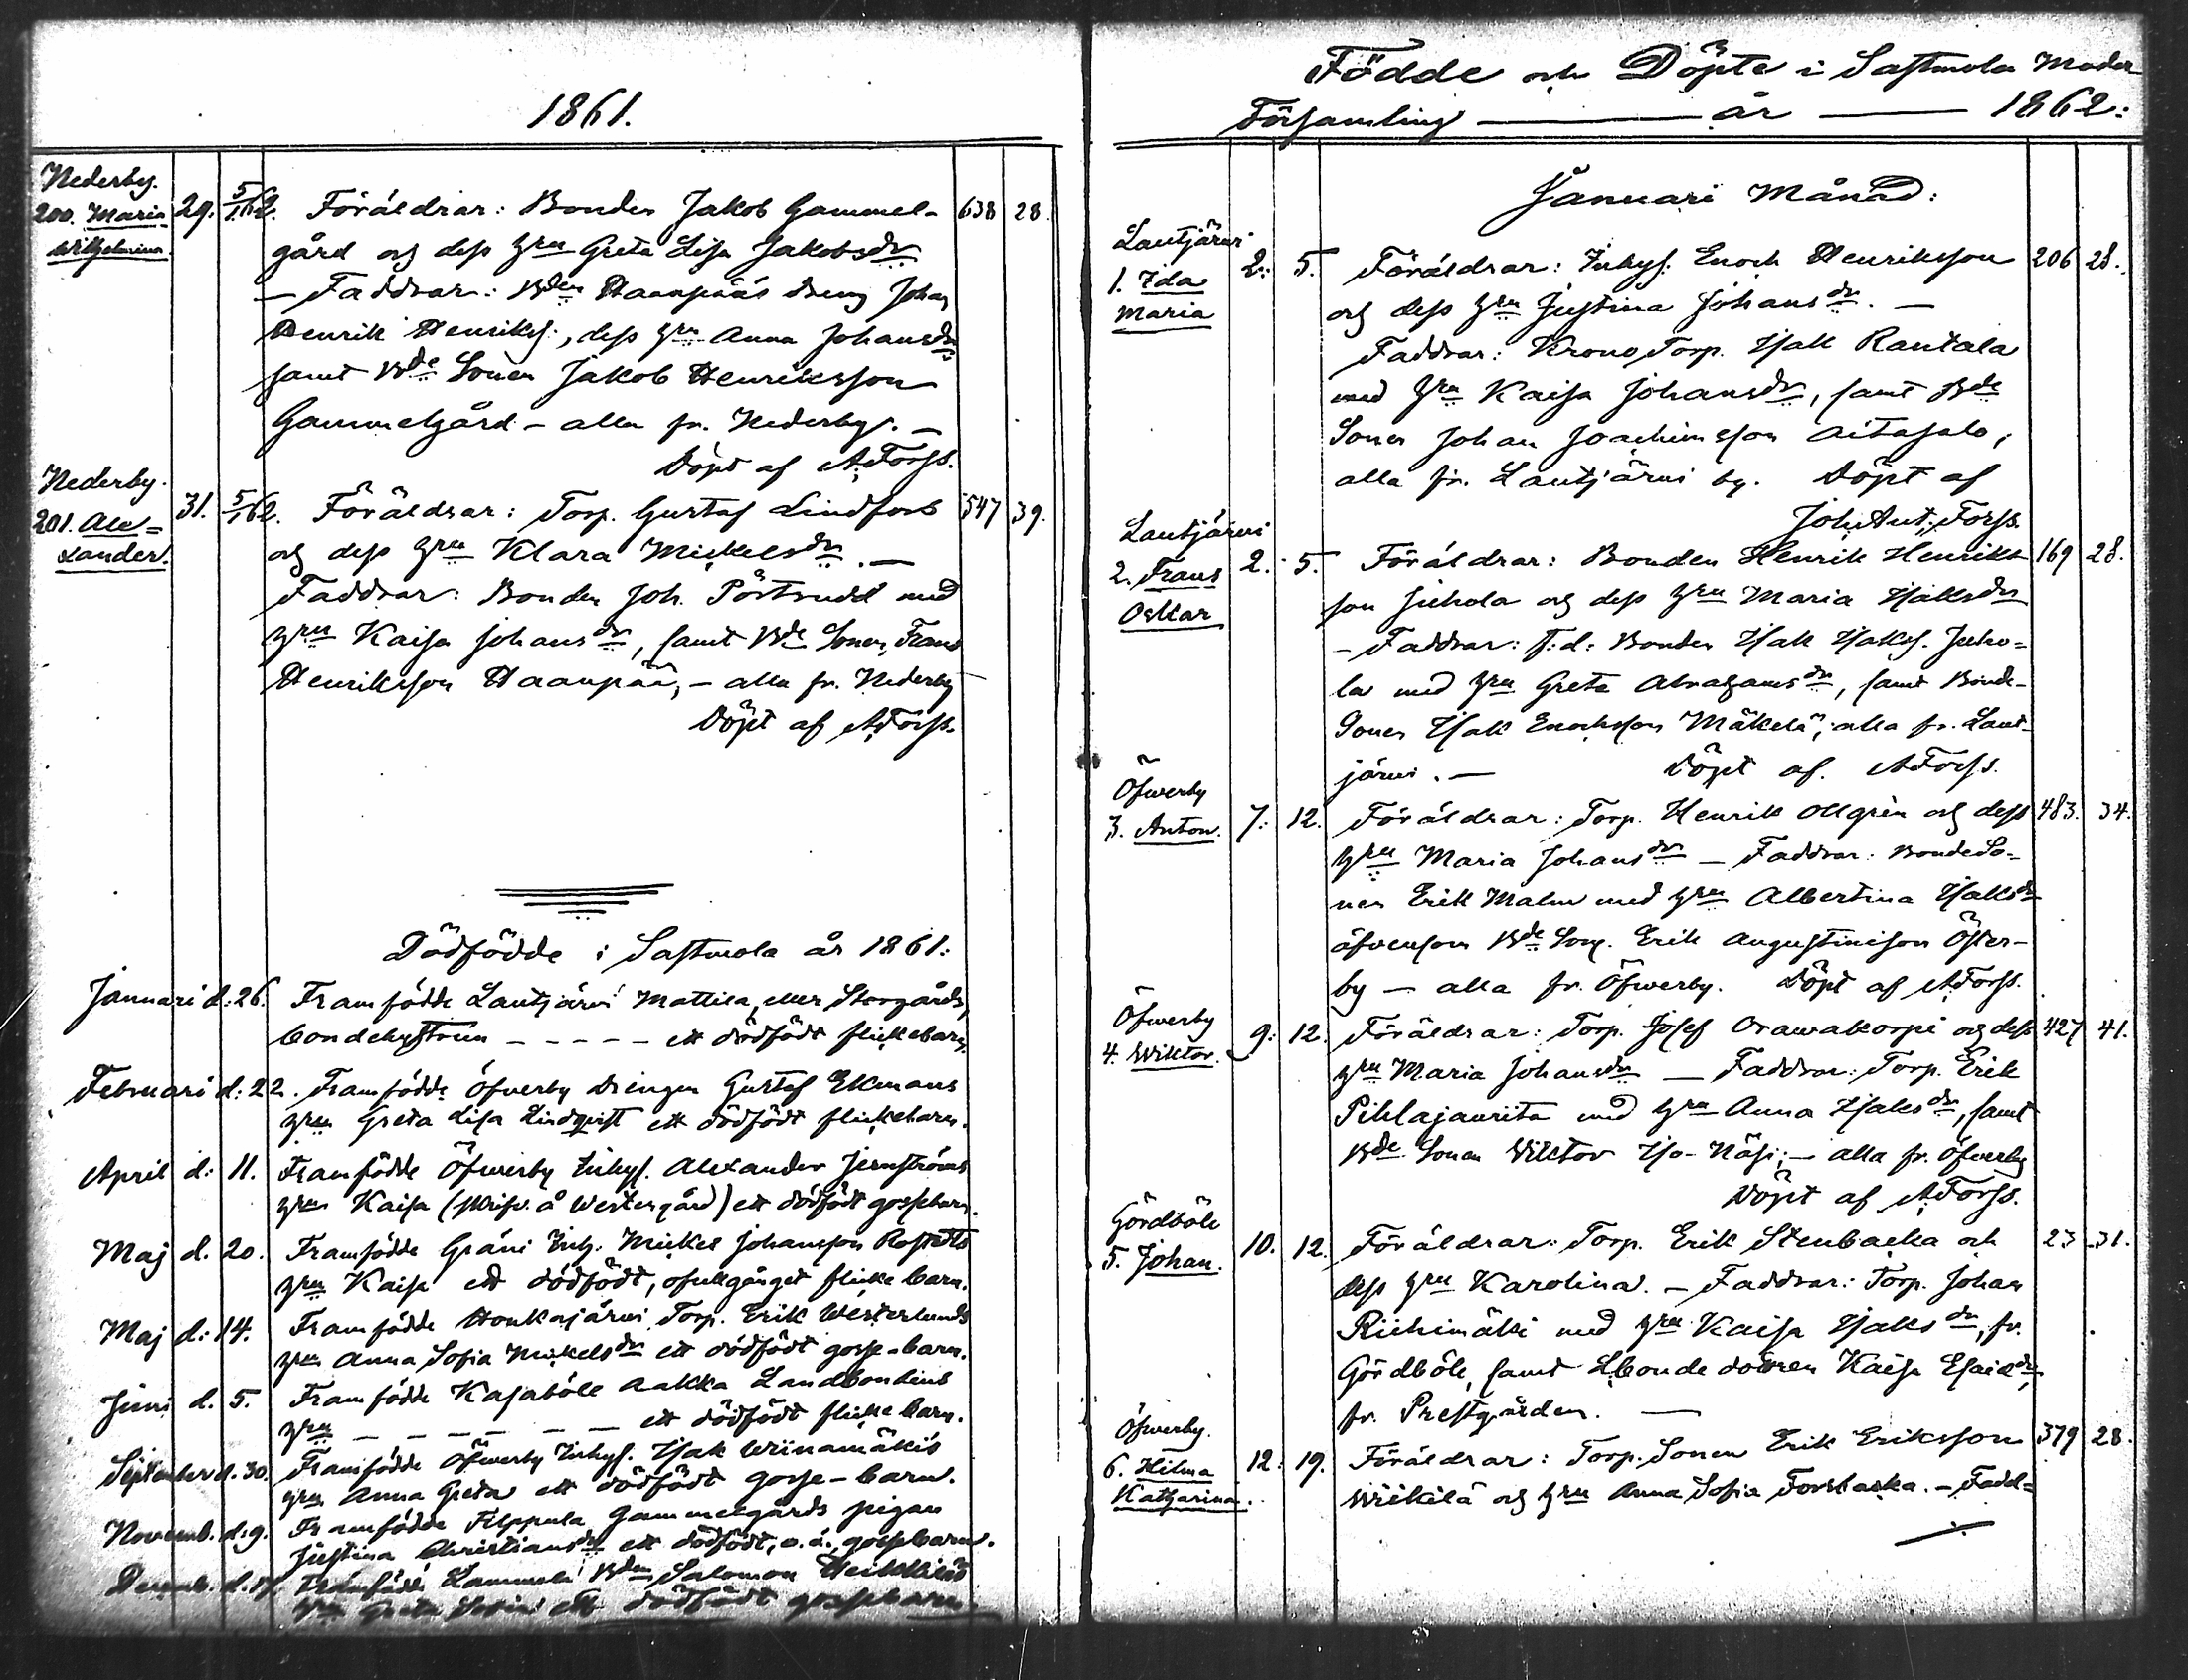 1861.
Nederby.
200. Maria
Wilhelmina.
29. 5/1 62. Föräldrar: Bonden Jakob Gammel- 638 28.
gård och dess hru Greta Lisa Jakobsdr
— Faddrar: Bden Haanpääs dreng Johan
Henrik Henrikss., dess hru Anna Johansdr
samt Bde Sonen Jakob Henriksson
Gammelgård – alla fr. Nederby. —
Döpt af A Forss.
Nederby.
201. Ale=
xander.
31. 5/1 62. Föräldrar: Torp. Gustaf Lindfors 547 39.
och dess hru Klara Mickelsdr. —
Faddrar: Bonden Joh. Pörtrudd med
hru Kaisa Johansdr, samt Bde Sonen, Frans
Henriksson Haanpää, – alla fr. Nederby
Döpt af A Forss.
Dödfödde i Sastmola år 1861:
Januari d: 26. Framfödde Lautjärvi Mattila, eller Storgårds,
bondehustrun - - - - - ett dödfödt flickebarn.
Februari d: 22. Framfödde Öfverby drengen Gustaf Ekmans
hru Greta Lisa Lindqvist ett dödfödt flickebarn.
April d: 11. Framfödde Öfwerby Inhys. Alexander Jernströms
hru Kaisa (skrifv. å Westergård) ett dödfödt gossebarn.
Maj d. 20. Framfödde Gräni Inh. Mickel Johansson
hru Kaisa ett dödfödt, ofullgånget flicke barn.
Maj d: 14. Framfödde Honkajärvi Torp. Erik Westerlunds
hru Anna Sofia Mickelsdr ett dödfödt gosse-barn.
Juni d. 5. Framfödde Kasaböle Aakka Landbondens
hru — — — — — ett dödfödt flicke barn.
September d. 30. Framfödde Öfwerby Inhys. Isak Wiinamäki's
hru Anna Greta ett dödfödt gosse-barn.
Novemb. d: 9. Framfödde Filppula Gammelgårds pigan
Justina Christiansdr ett dödfödt, o. ä., gossebarn.
Decemb. d. Framfödde Lammela Bden Salomon Heikkiläs
hru Greta ett dödfödt gossebarn.
Födde och Döpte i Sastmola Moder
Församling ——— år ——— 1862:
Januari Månad:
Lautjärvi
1. Ida
Maria
2: 5. Föräldrar: Inhys. Enoch Henriksson 206 28.
och dess hru Justina Johansdr. —
Faddrar: Krono Torp. Isak Rantala
med hru Kaisa Johansdr, samt Bde
Sonen Johan Joachimsson Aitasalo,
alla fr. Lautjärvi by. Döpt af
Joh. Ant. Forss.
Lautjärvi
2. Frans
Oskar
2. 5. Föräldrar: Bonden Henrik Henriks 169 28.
son Juhola och dess hru Maria Isaksdr
– Faddrar: f: d: Bonden Isak Isakss. Juho=
la med hru Greta Abrahamsdr, samt Bonde-
Sonen Isak Enochsson Mäkelä, alla fr. Laut-
järvi. — Döpt af. A Forss.
Öfwerby
3. Anton.
7: 12. Föräldrar: Torp. Henrik Ollgrèn och dess 483. 34.
hru Maria Johansdr — Faddrar: Bonde So-
nen Erik Malm med hru Albertina Isaksdr
äfvensom Bde Son. Erik Augustinsson Öster-
by — alla fr. Öfwerby. Döpt af A Forss.
Öfwerby
4. Wiktor.
9: 12. Föräldrar: Torp. Josef Orawakorpi och dess 427 41.
hru Maria Johansdr — Faddrar: Torp. Erik
Pihlajaurita med hru Anna Isaksdr, samt
Bde Sonen Wiktor Iso-Näsi; – alla fr. Öfverby
Döpt af A Forss.
Gördböle
5. Johan.
10. 12. Föräldrar: Torp. Erik Stenbacka och 23 31.
dess hru Karolina. – Faddrar: Torp. Johan
Riihimäki med hru Kaisa Isaksdr, fr.
Gördböle, samt Lbonde dottren Kaisa Esaidr,
fr. Prestgården. —
Öfwerby.
6. Hilma
Katharina.
12: 19. Föräldrar: Torp. Sonen Erik Eriksson 379 28.
Wiikilä och hru Anna Sofia Forsbacka. – Fadd=